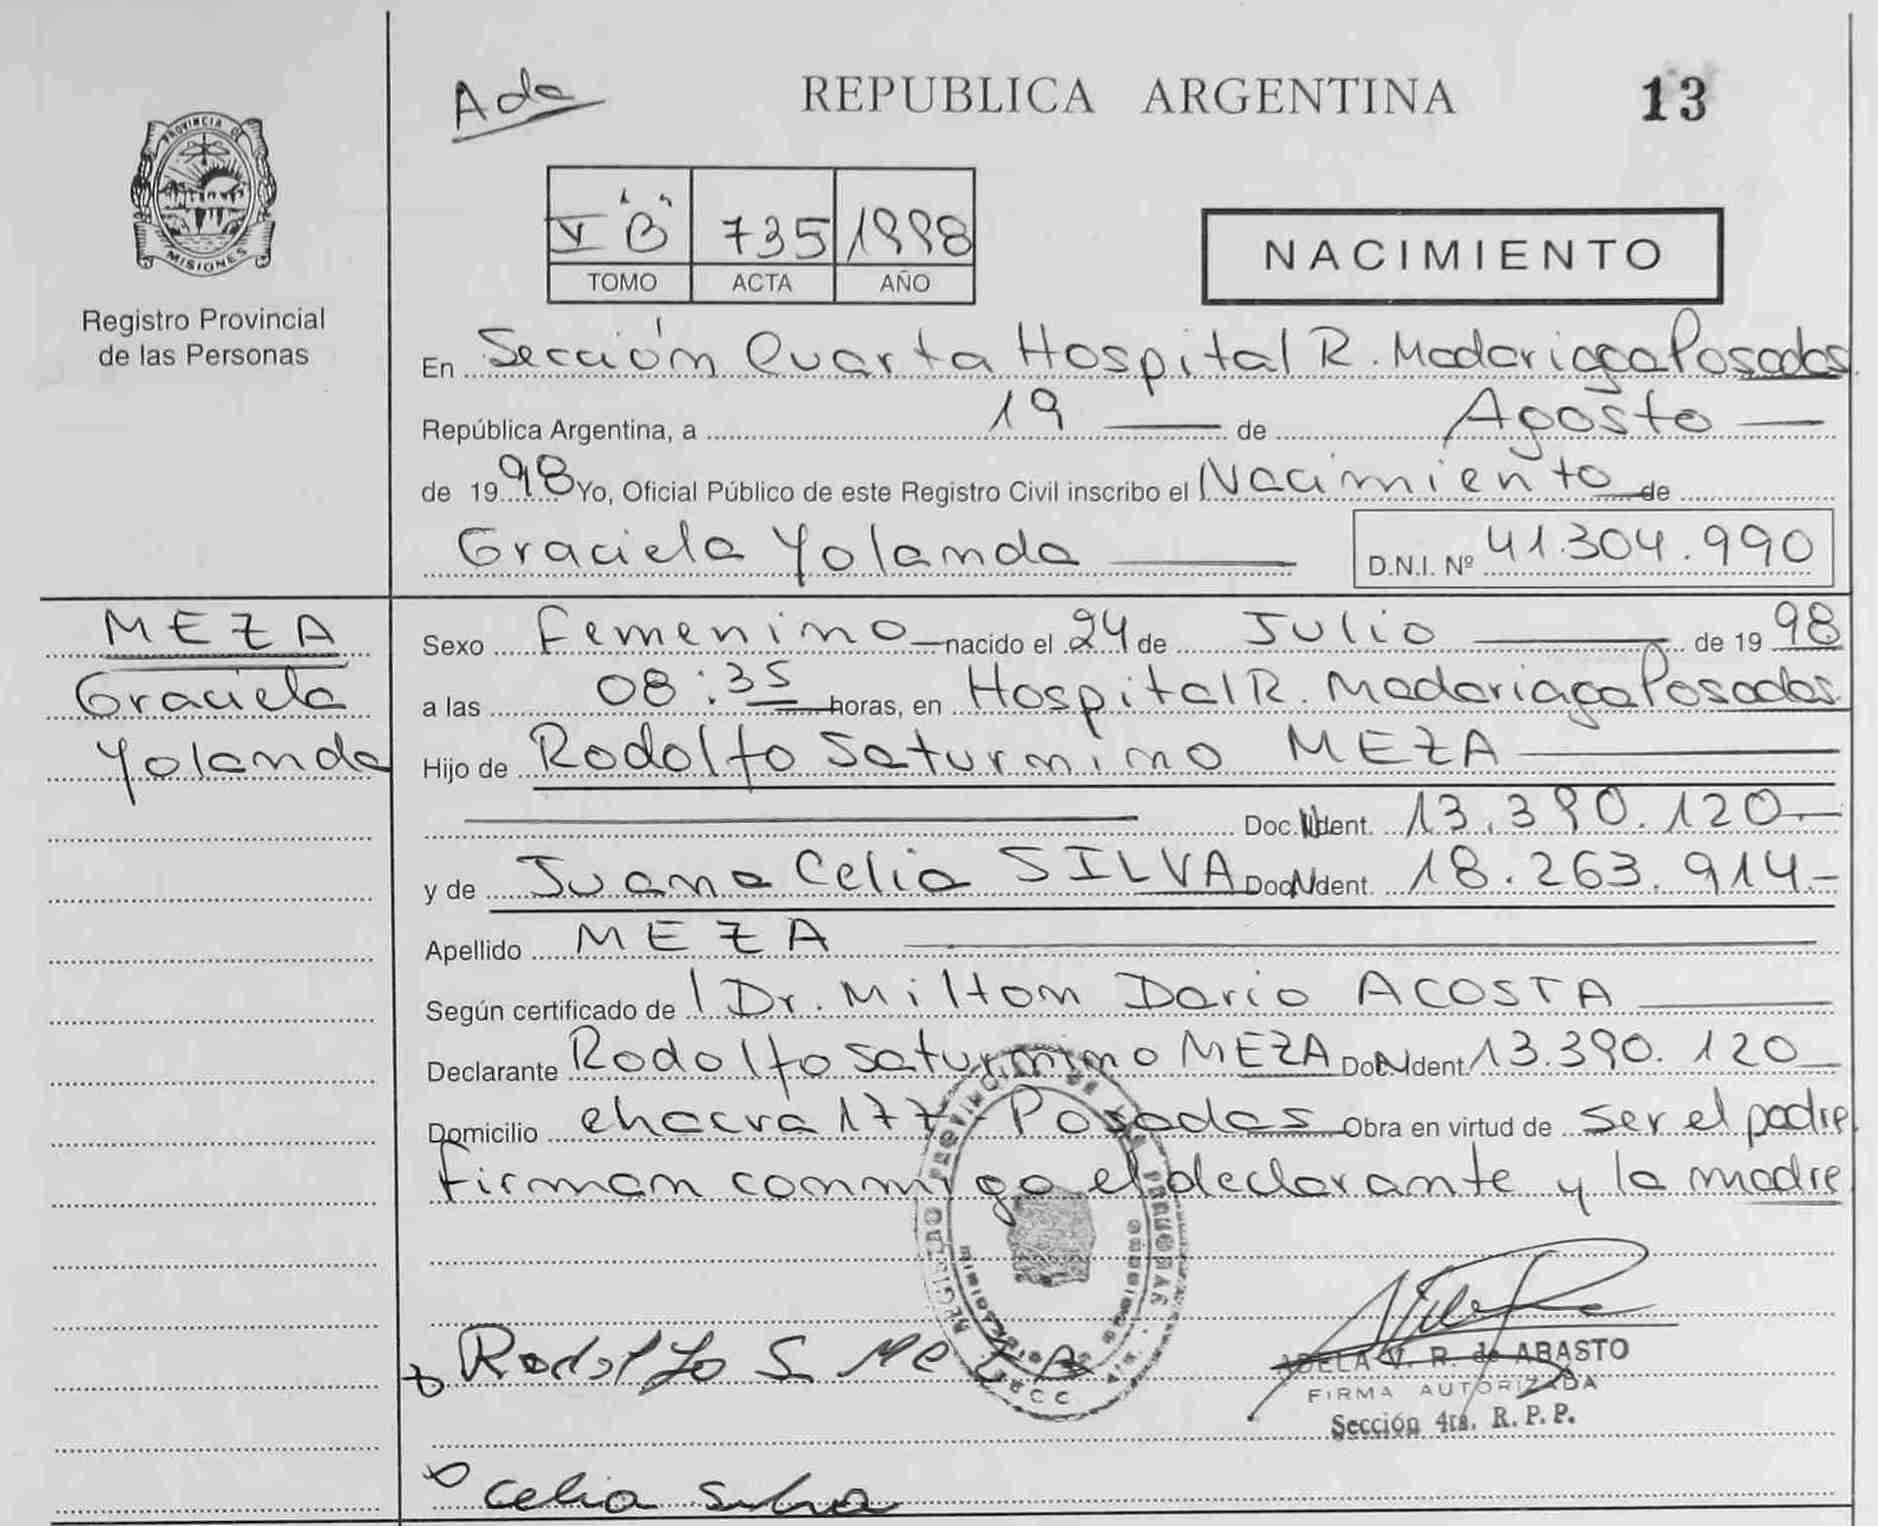 Ada
REPUBLICA ARGENTINA
13
PROVINCIA DE
MISIONES
Registro Provincial
de las Personas
V "B" 735 1998
TOMO ACTA AÑO
NACIMIENTO
En Sección Cuarta Hospital R. Madariaga Posadas
República Argentina, a 19 de Agosto
de 1998 Yo, Oficial Público de este Registro Civil inscribo el Nacimiento de
Graciela Yolanda D.N.I. Nº 41.304.990
MEZA
Graciela
Yolanda
Sexo Femenino nacido el 24 de Julio de 1998
a las 08:35 horas, en Hospital R. Madariaga Posadas
Hijo de Rodolfo Saturnino MEZA
Doc. N Ident. 13.390.120.-
y de Juana Celia SILVA Doc N Ident. 18.263.914.-
Apellido MEZA
Según certificado de l Dr. Milton Dario ACOSTA
Declarante Rodolfo Saturnino MEZA Doc N Ident 13.390.120
Domicilio chacra 177 Posadas Obra en virtud de ser el padre
firman conmigo el declarante y la madre
REGISTRO PROVINCIAL DE LAS PERSONAS
Rodolfo S Meza
ADELA V. R. de ABASTO
FIRMA AUTORIZADA
Sección 4ta. R.P.P.
celia silva